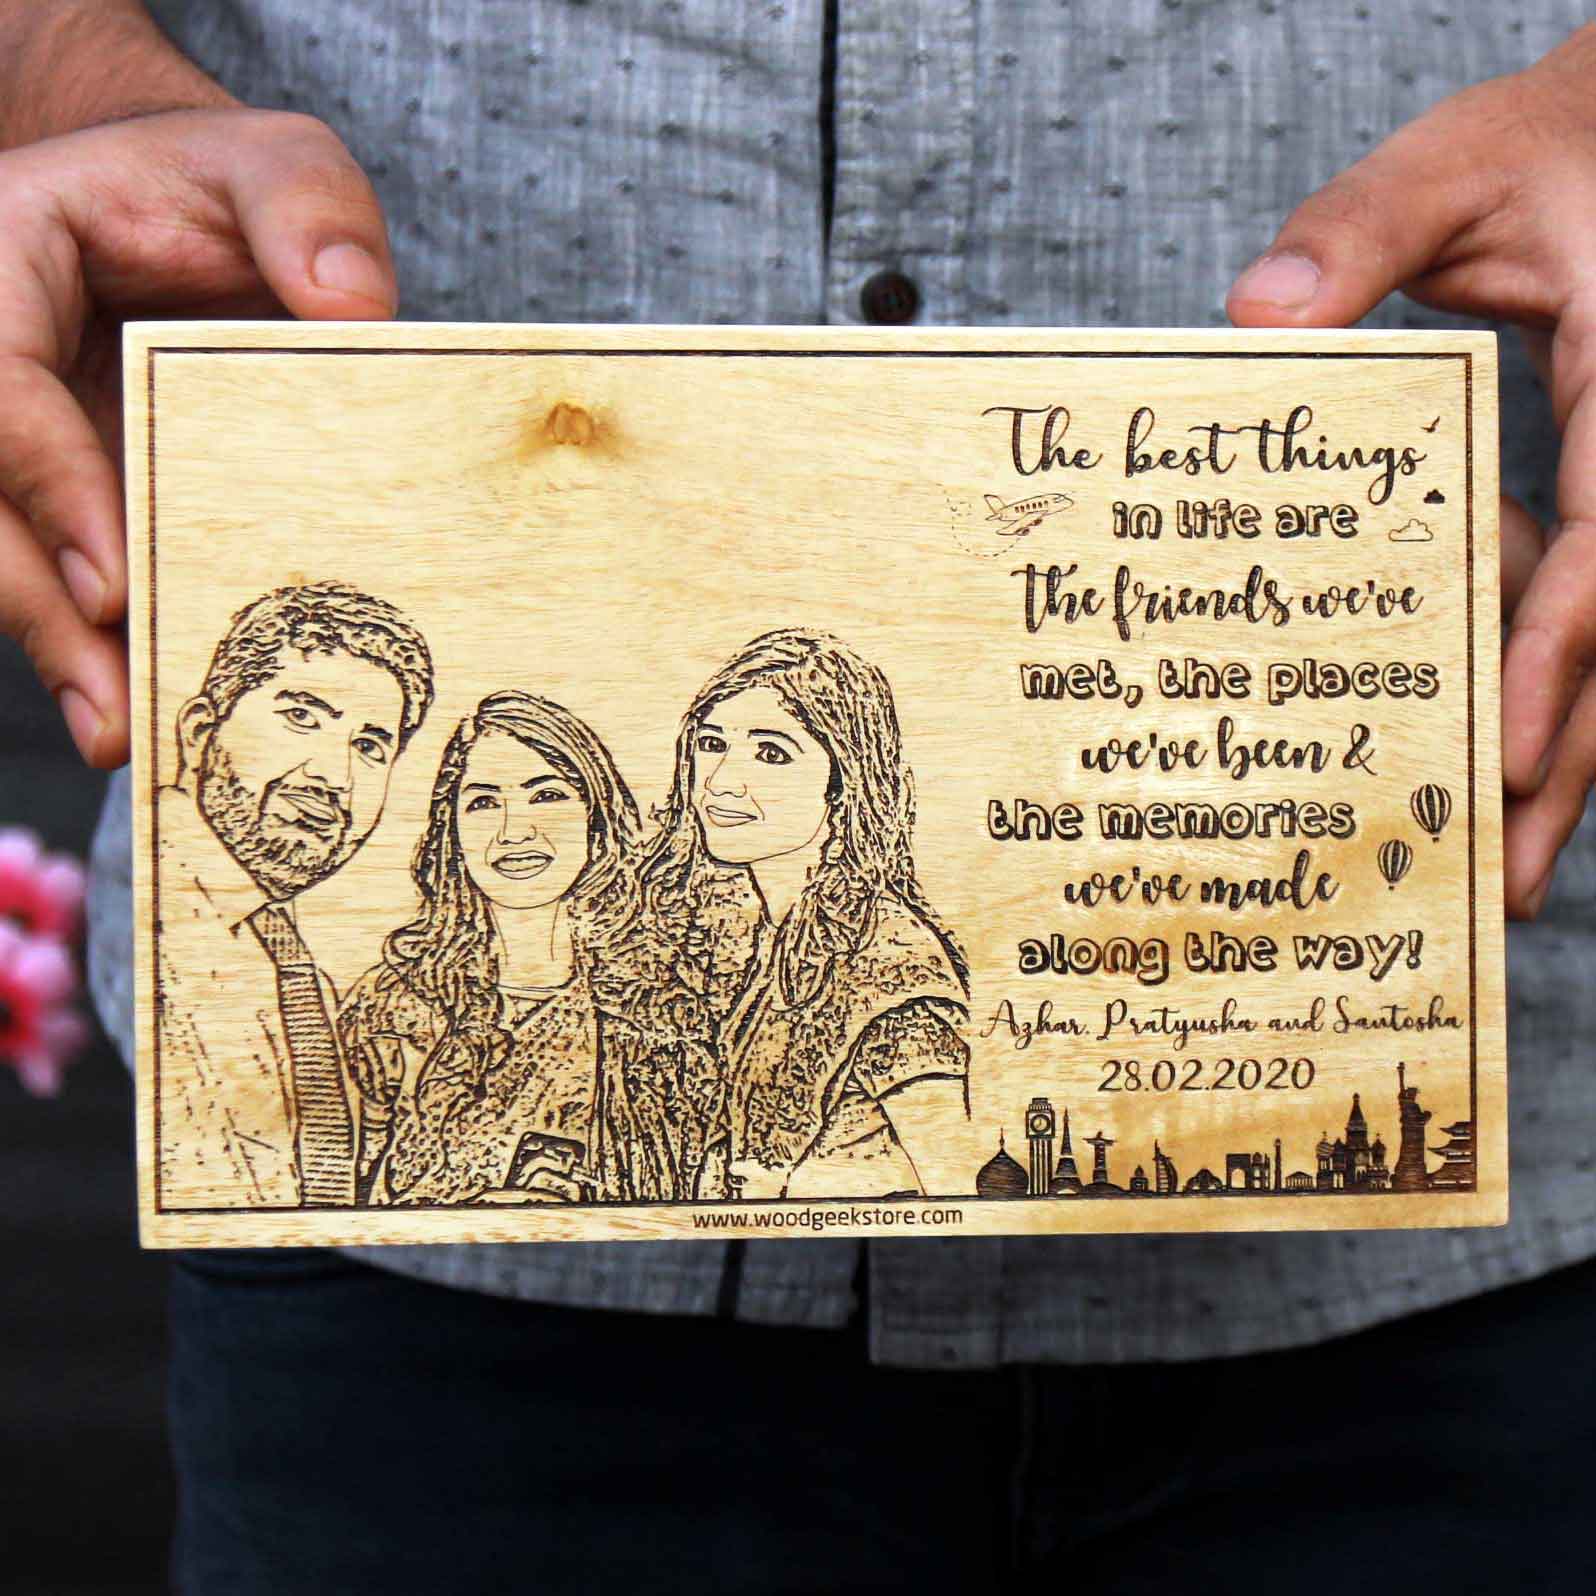 The best things
in life are
the friends we've
met, the places
we've been &
the memories
we've made
along the way!
Azhar, Pratyusha and Santosha
28.02.2020
www.woodgeekstore.com